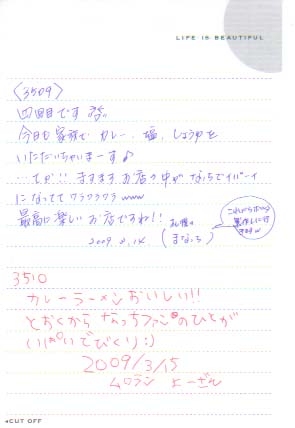 LIFE IS BEAUTIFUL
〈3509〉
四回目です
今日も家族で カレー、塩、しょうゆを
いただいちゃいまーす♪
…てか!! ますますお店の中がなっちでイパーイ
になってて ワラワラワラwww
最高に楽しいお店ですね!!
2009.2.14
札幌の
(まなっち)
これから
3510
カレーラーメンおいしい!!
とおくから なっちファンのひとが
いぱいでびくり:)
2009/3/15
ムロラン
CUT OFF